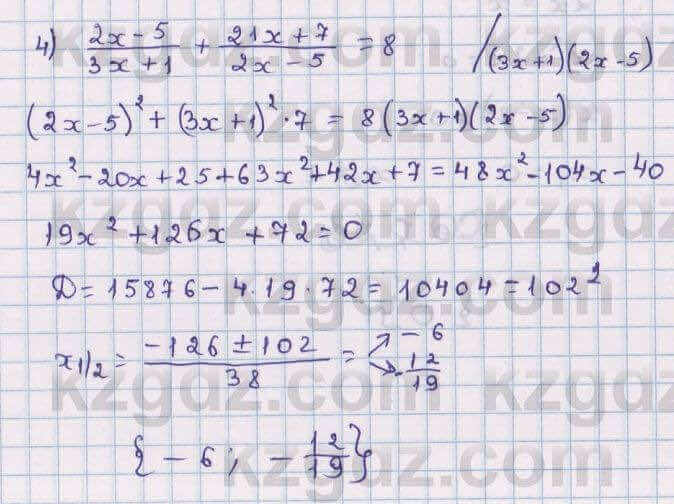 4) (2x - 5)/(3x + 1) + (21x + 7)/(2x - 5) = 8 /(3x+1)(2x-5)
(2x-5)² + (3x+1)²·7 = 8(3x+1)(2x-5)
4x² - 20x + 25 + 63x² + 42x + 7 = 48x² - 104x - 40
19x² + 126x + 72 = 0
D = 15876 - 4·19·72 = 10404 = 102²
x₁/₂ = (-126 ± 102)/38 = ↗ -6 ↘ -12/19
{-6; -12/19}
kzgdz.com